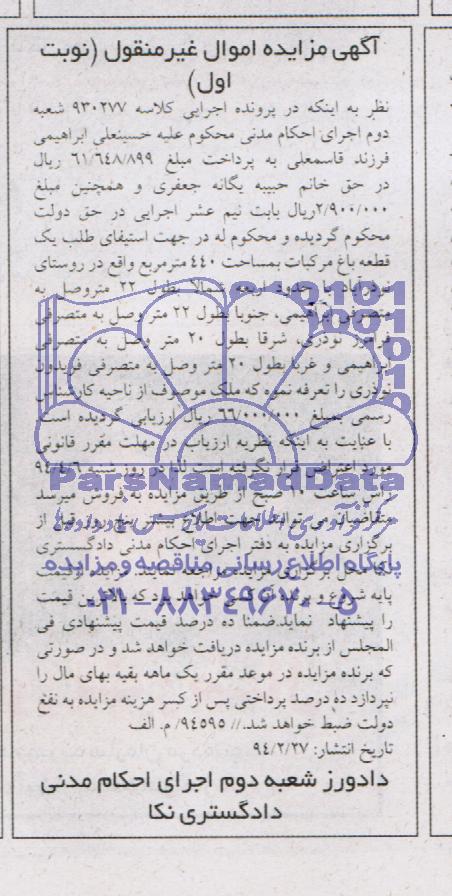 آگهی مزایده اموال غیرمنقول (نوبت
اول)
نظر به اینکه در پرونده اجرایی کلاسه ۹۳۰۲۷۷ شعبه
دوم اجرای احکام مدنی محکوم علیه حسینعلی ابراهیمی
فرزند قاسمعلی به پرداخت مبلغ ۶۱/۶۴۸/۸۹۹ ریال
در حق خانم حبیبه یگانه جعفری و همچنین مبلغ
۲/۹۰۰/۰۰۰ریال بابت نیم عشر اجرایی در حق دولت
محکوم گردیده و محکوم له در جهت استیفای طلب یک
قطعه باغ مرکبات بمساحت ۴۴۰ مترمربع واقع در روستای
نوذرآباد با حدود اربعه شمالا بطول ۲۲ متروصل به
متصرفی ابراهیمی، جنوبا بطول ۲۲ متر وصل به متصرفی
فرامرز نوذری، شرقا بطول ۲۰ متر وصل به متصرفی
ابراهیمی و غربا بطول ۲۰ متر وصل به متصرفی فریدون
نوذری را تعرفه نموه که ملک موصوف از ناحیه کارشناس
رسمی بمبلغ ۶۶/۰۰۰/۰۰۰ ریال ارزیابی گردیده است.
با عنایت به اینکه نظریه ارزیاب در مهلت مقرر قانونی
مورد اعتراض قرار نگرفته است لذا در روز شنبه ۹۴/۴/۶
راس ساعت ۱۰ صبح از طریق مزایده به فروش میرسد
متقاضیان می توانند جهت اطلاع بیشتر پنج روز قبل از
برگزاری مزایده به دفتر اجرای احکام مدنی دادگستری
نکا محل برگزاری مزایده مراجعه نمایند. مزایده از قیمت
پایه شروع و برنده کسی خواهد بود که بالاترین قیمت
را پیشنهاد نماید.ضمنا ده درصد قیمت پیشنهادی فی
المجلس از برنده مزایده دریافت خواهد شد و در صورتی
که برنده مزایده در موعد مقرر یک ماهه بقیه بهای مال را
نپردازد ده درصد پرداختی پس از کسر هزینه مزایده به نفع
دولت ضبط خواهد شد.// ۹۴۵۹۵/ م. الف
تاریخ انتشار: ۹۴/۲/۲۷
دادورز شعبه دوم اجرای احکام مدنی
دادگستری نکا
ParsNamadData
پایگاه اطلاع رسانی مناقصه و مزایده
۰۲۱-۸۸۳۴۹۶۷۰-۵